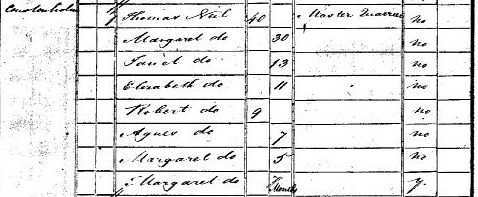 Thomas Neil 40 Master Quarrier no
Margaret do 30 no
Janet do 13 no
Elizabeth do 11 no
Robert do 9 no
Agnes do 7 no
Margaret do 5 no
Margaret do Months y.